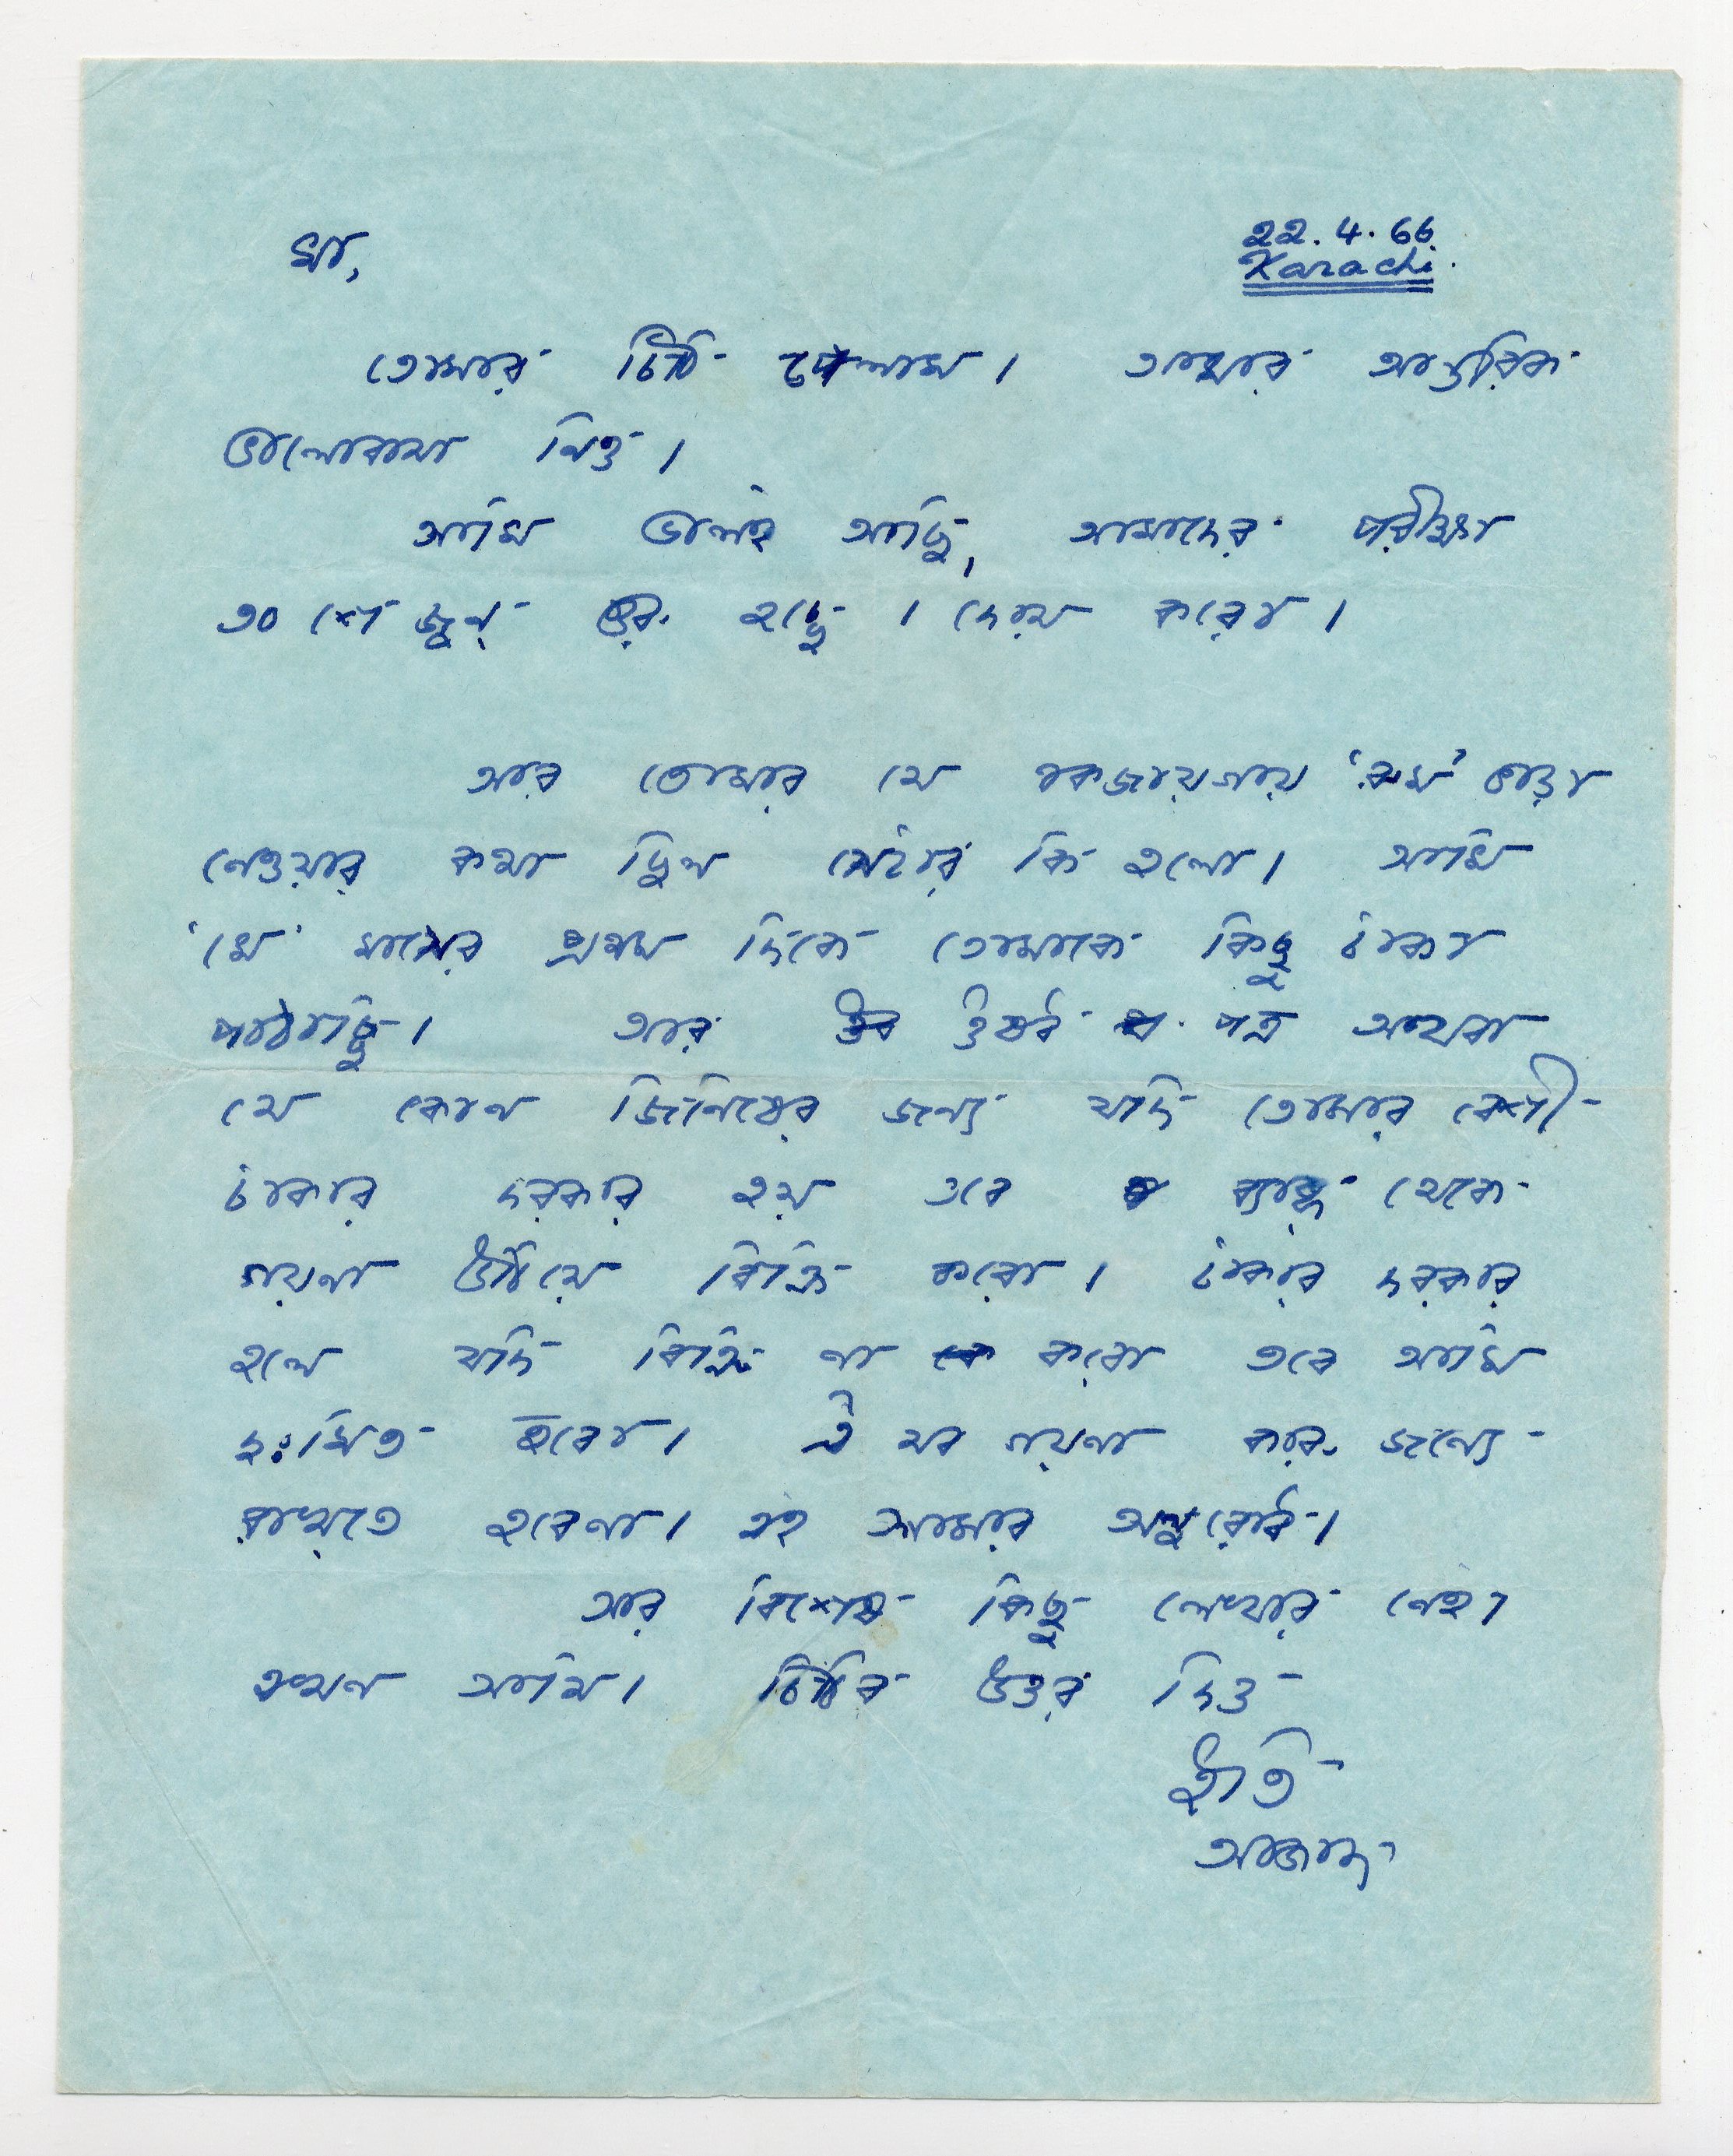 22.4.66.
Karachi.
মা,
তোমার চিঠি পেলাম। আমার আন্তরিক
ভালোবাসা নিও।
আমি ভালই আছি, আমাদের পরীক্ষা
৩০ শে জুন শুরু হচ্ছে। দোয়া করো।
আর তোমার যে একজায়গায় ‘রুম’ ভাড়া
নেওয়ার কথা ছিল সেটার কি হলো। আমি
‘মে’ মাসের প্রথম দিকে তোমাকে কিছু টাকা
পাঠাচ্ছি। আর ঔষধ পত্র অথবা
যে কোন জিনিষের জন্য যদি তোমার বেশী
টাকার দরকার হয় তবে ব্যাঙ্ক থেকে
গয়না উঠিয়ে বিক্রি করো। টাকার দরকার
হলে যদি বিক্রি না করো তবে আমি
দুঃখিত হবো। ঐ সব গয়না কারু জন্যে
রাখতে হবেনা। এই আমার অনুরোধ।
আর বিশেষ কিছু লেখার নেই।
এখন আসি। চিঠির উত্তর দিও
ইতি
আজাদ